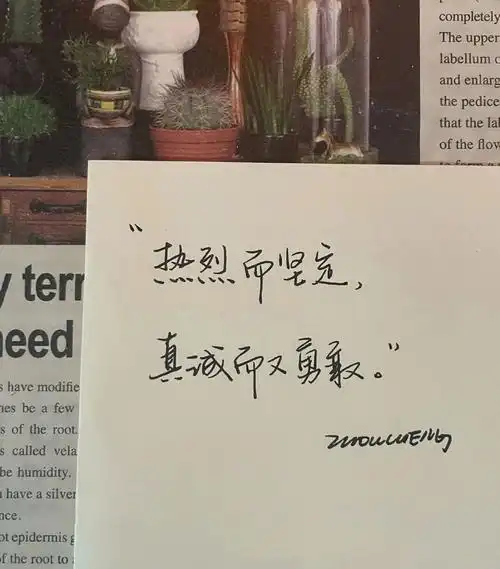 completely
The upper
labellum o
and enlarg
the pedice
that the la
of the flow
"热烈而坚定,
真诚而又勇敢。"
y terr
need
s have modifie
nes be a few
s of the root.
s called vela
be humidity.
have a silver
nce.
ot epidermis
of the root to